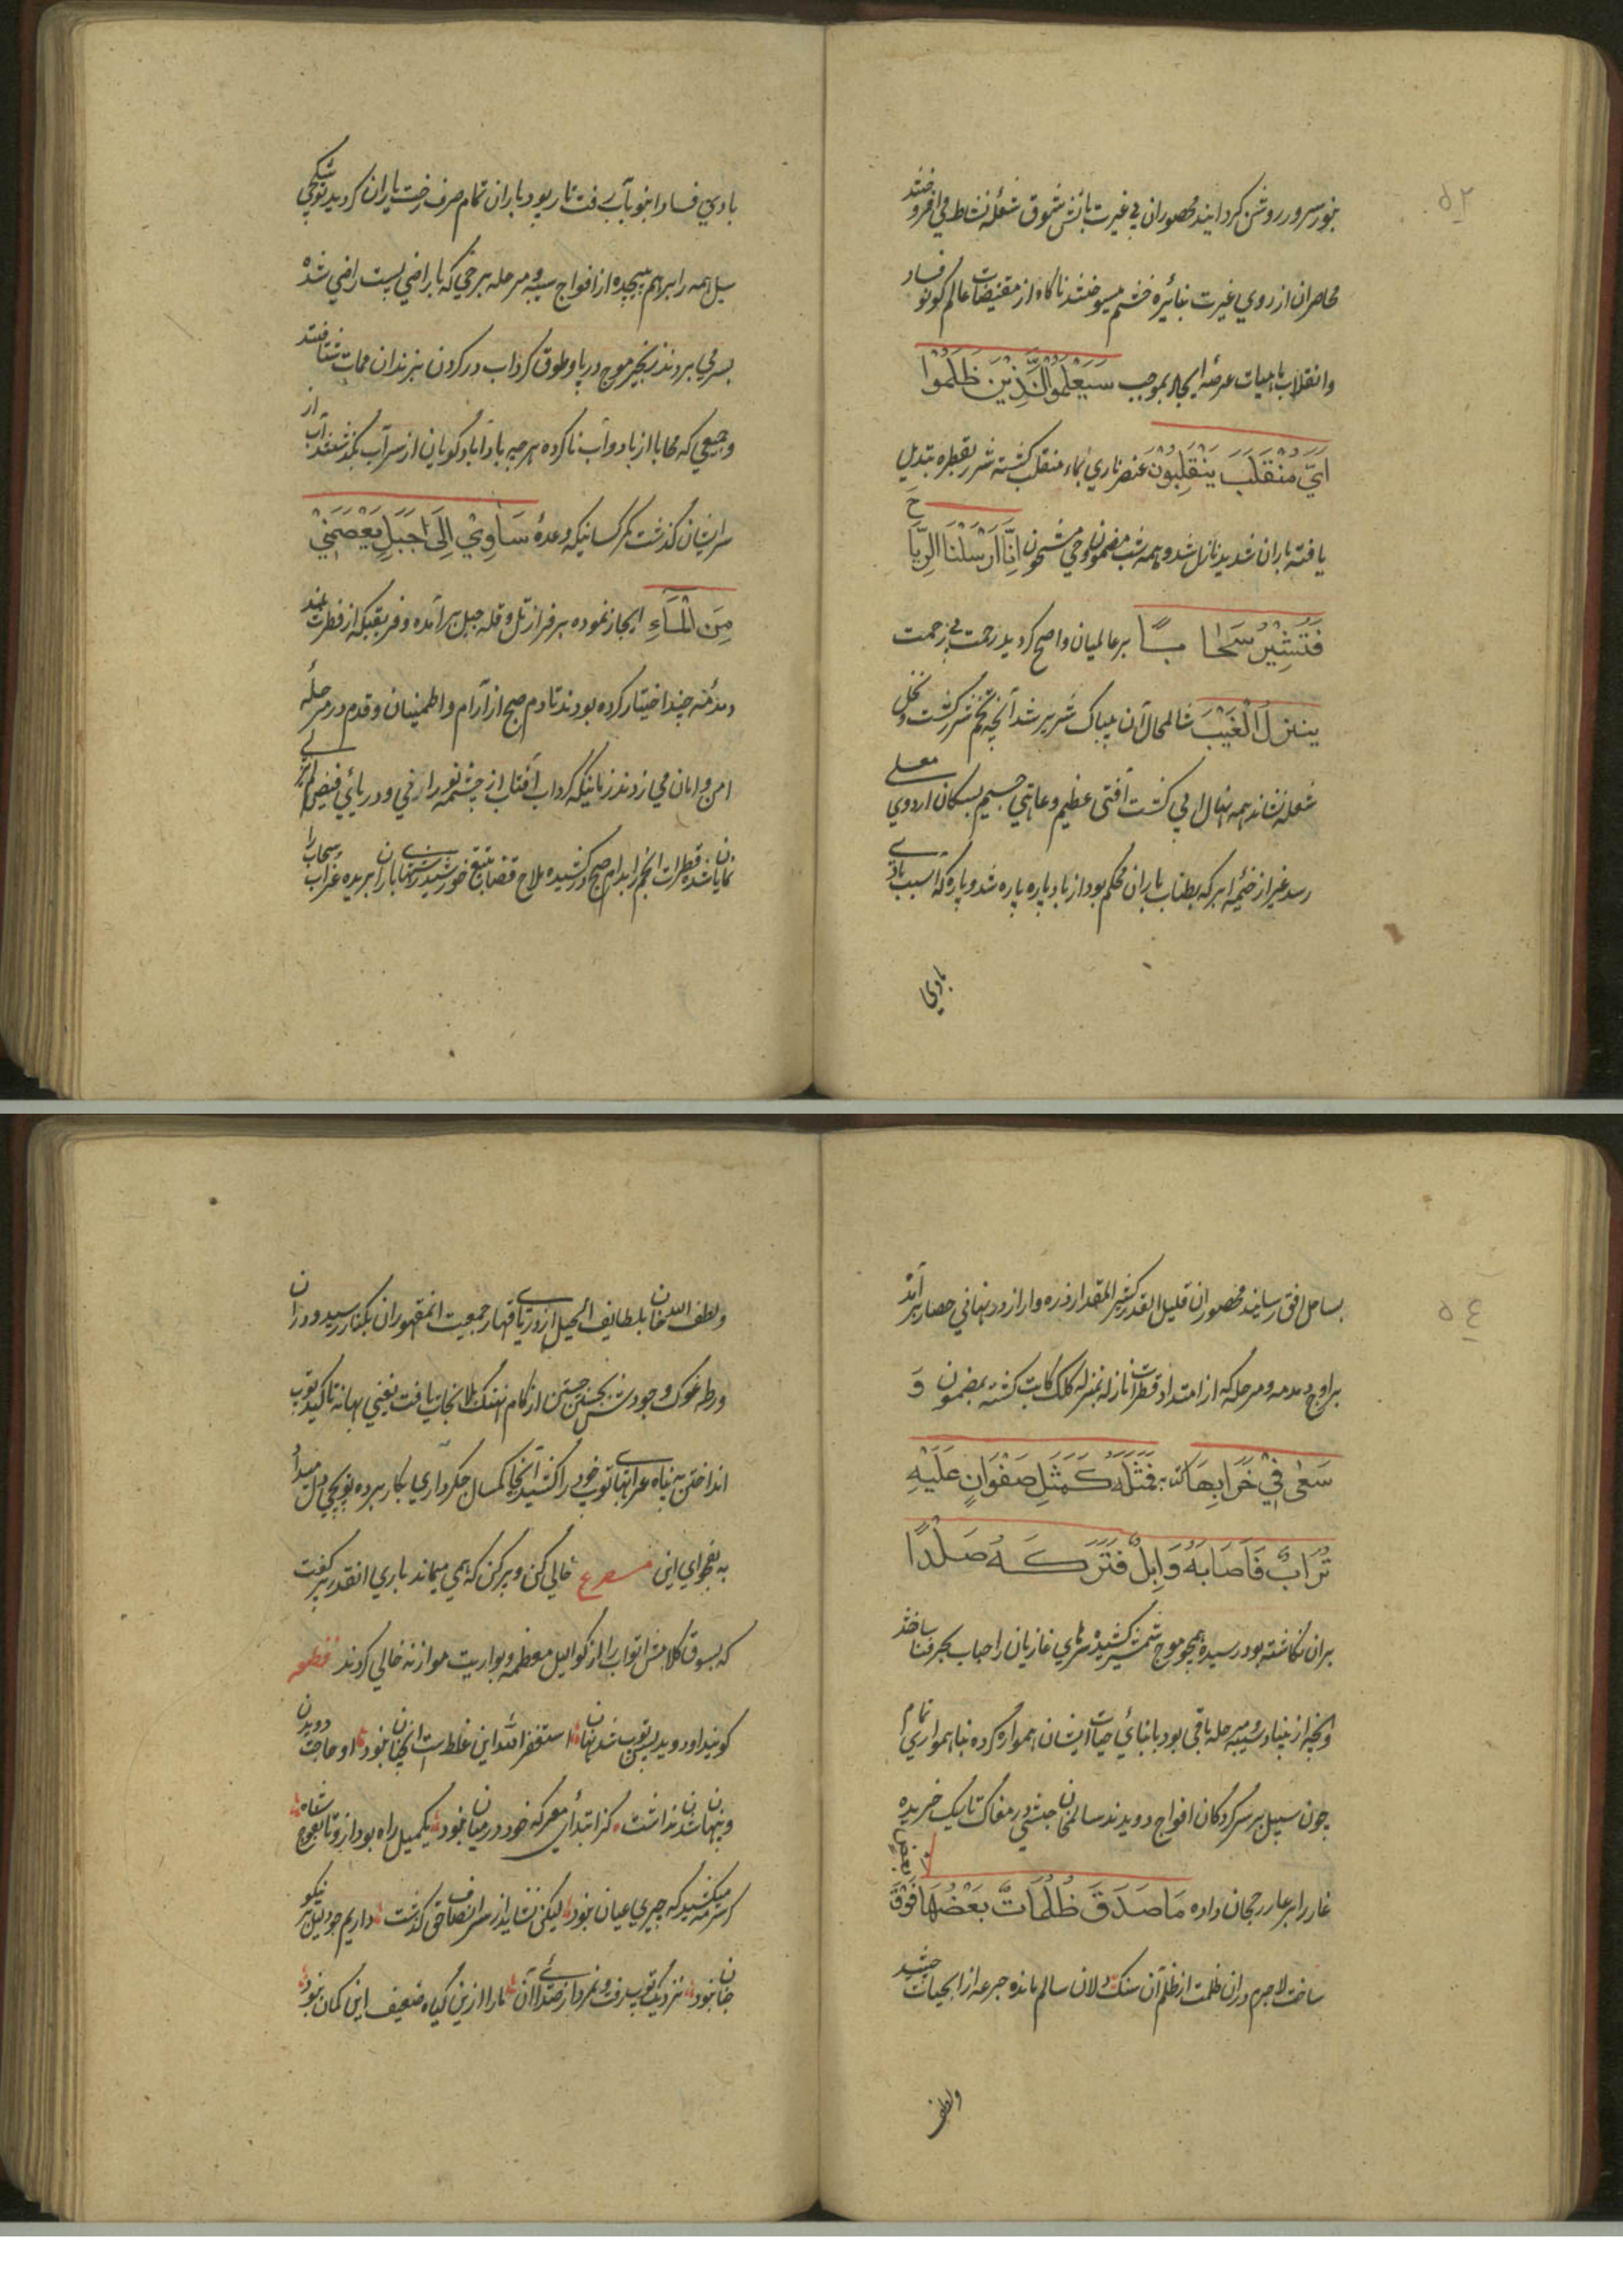 ۵۲
بنور سرور روشن کردانیند محصوران بی غیرت بآتش شوق شعلهٔ نشاط می افروختند
محاصران از روی غیرت بنائره خشم میسوختند ناکاه از مقتضیات عالم کون و فساد
وانقلاب ماهیات عرصهٔ ایجاد بموجب سَیَعْلَمُوالَّذِیْنَ ظَلَمُوا
اَیَّ مُنْقَلَبَ یَنْقَلِبُوْنَ عنصر ناری بماء منقلب کشته شرر بقطره تبدیل
یافته باران شدید نازل شد و همه شب مضمون وحی مشحون اِنَّا اَرْسَلْنَا الرِّیَاحَ
فَتُثِیْرُ سَحَابًا بر عالمیان واضح کردید رحمت بی زحمت
ینزل الْغَیْبَ شامل حال آن بیباک شریر شد آنچه تخم شرر کشت و نخل
شعله نشاند همه نهال امی کشت آفتی عظیم و عاهتی جسیم بسکان اردوی معلی
رسد غیر از خیمهٔ ابر که بطناب باران محکم بود از باد پاره پاره شد و پاره که اسیب بادی
بادی
بادی فساد اینو بآب رفت تار پود باران تمام صرف رخت یاران کردید توپچی شکنجی
سیل همه را بر هم پیچیده از افواج سیبه و مرحله برخی که با راضی پست راضی شده
بسر می بردند زنجیر موج در پا و طوق کرداب در کردن بزندان ممات شتافتند
وجمعی که محابا از باد و آب ناکرده هر چه بادا باد کویان از سر آب نکذشتند آب از
سر ایشان کذشت مکر کسانیکه وعدهٔ سَاٰوِیْ اِلَیٰ جَبَلٍ یَعْصِمُنِیْ
مِنَ الْمَآءِ ایجاز نموده بر فراز تل و قله جبل بر آمده و فریقیکه از فطرت بلند
دمدمه چند اختیار کرده بودند تا دم صبح از آرام و اطمینان و قدم در مرحلهٔ
امن و امان می زدند زمانیکه کرداب آفتاب از چشمه نور رافی و دریائی فیض لم یزلی
نمایان شد قطرات انجم را بدام صبح درکشیده ملاح قضا بتیغ خورشید رسنهای باران را بریده غراب سحاب را
۵٤
بساحل افق رسانید محصوران قلیل القدر کثیر المقدار ذره وار از دود نهانی حصار بر آمده
بر اوج دمدمه و مرحله که از امتداد قطرات نازله بمنزله کلک کابت کشته بمضمون وَ
سَعٰی فِیْ خَرَابِهَا کتابه فَمَثَلُهُ کَمَثَلِ صَفْوَانٍ عَلَیْهِ
تُرَابٌ فَاَصَابَهُ وَابِلٌ فَتَرَکَهُ صَلْدًا
بران نکاشته بود رسیده همچو موج شمشیر کشیده سرهای غازیان را حباب بحر فنا ساختند
وآنچه از بنیاد سیبه و مرحله باقی بود با بنای حیات ایشان هموار کرده بنا همواری تمام
چون سیل بر سر کردکان افواج دویدند سالمخان حبشی در مغاک تاریک خریده
غار را بر عار رجحان داده مَا صَدَقَ ظُلُمَاتٌ بَعْضُهَا فَوْقَ بَعْضٍ
ساخت لاجرم دران ظلمت از ظلم آن سنک دلان سالم مانده جرعه از ابحیات چشید
ولطف
ولطف الله خان بلطایف الحیل از دریای قهار جمعیت انمقهوران بکنار رسید و در آن
ورطه غوک وجودش بجستن جستن از کام نهنک بلا نجات یافت یعنی بهانه تاکید توپ
انداختن به پناه عرابهای توپ خود را کشید و آنجا کمال جکرداری بکار برده توپچی دل میداد
به فحوای این مصرع خالی کن و پر کن که همی میماند باری انقدر پر کفت
که بسوق کلامش اتواب را از کوالیل معظمه و بواریت موازنه خالی کردند قطعه
کویند او دوید پس توپ شد نهان استغفر الله این غلط است آنچنان نبود او حاجت دویدن
و پنهان شدن نداشت کز ابتدای معرکه خود در میان نبود یکمیل راه بود ازو تا بفوج شاه
کر سرمه میکشید که چیزی عیان نبود لیکن نشاید از سر انصاف حق کذشت داریم جود لیل بر نیکو
جنان نبود نزدیک توپ رفت و نمرد از صدای آن ما را ازین کیاه ضعیف این کمان نبود